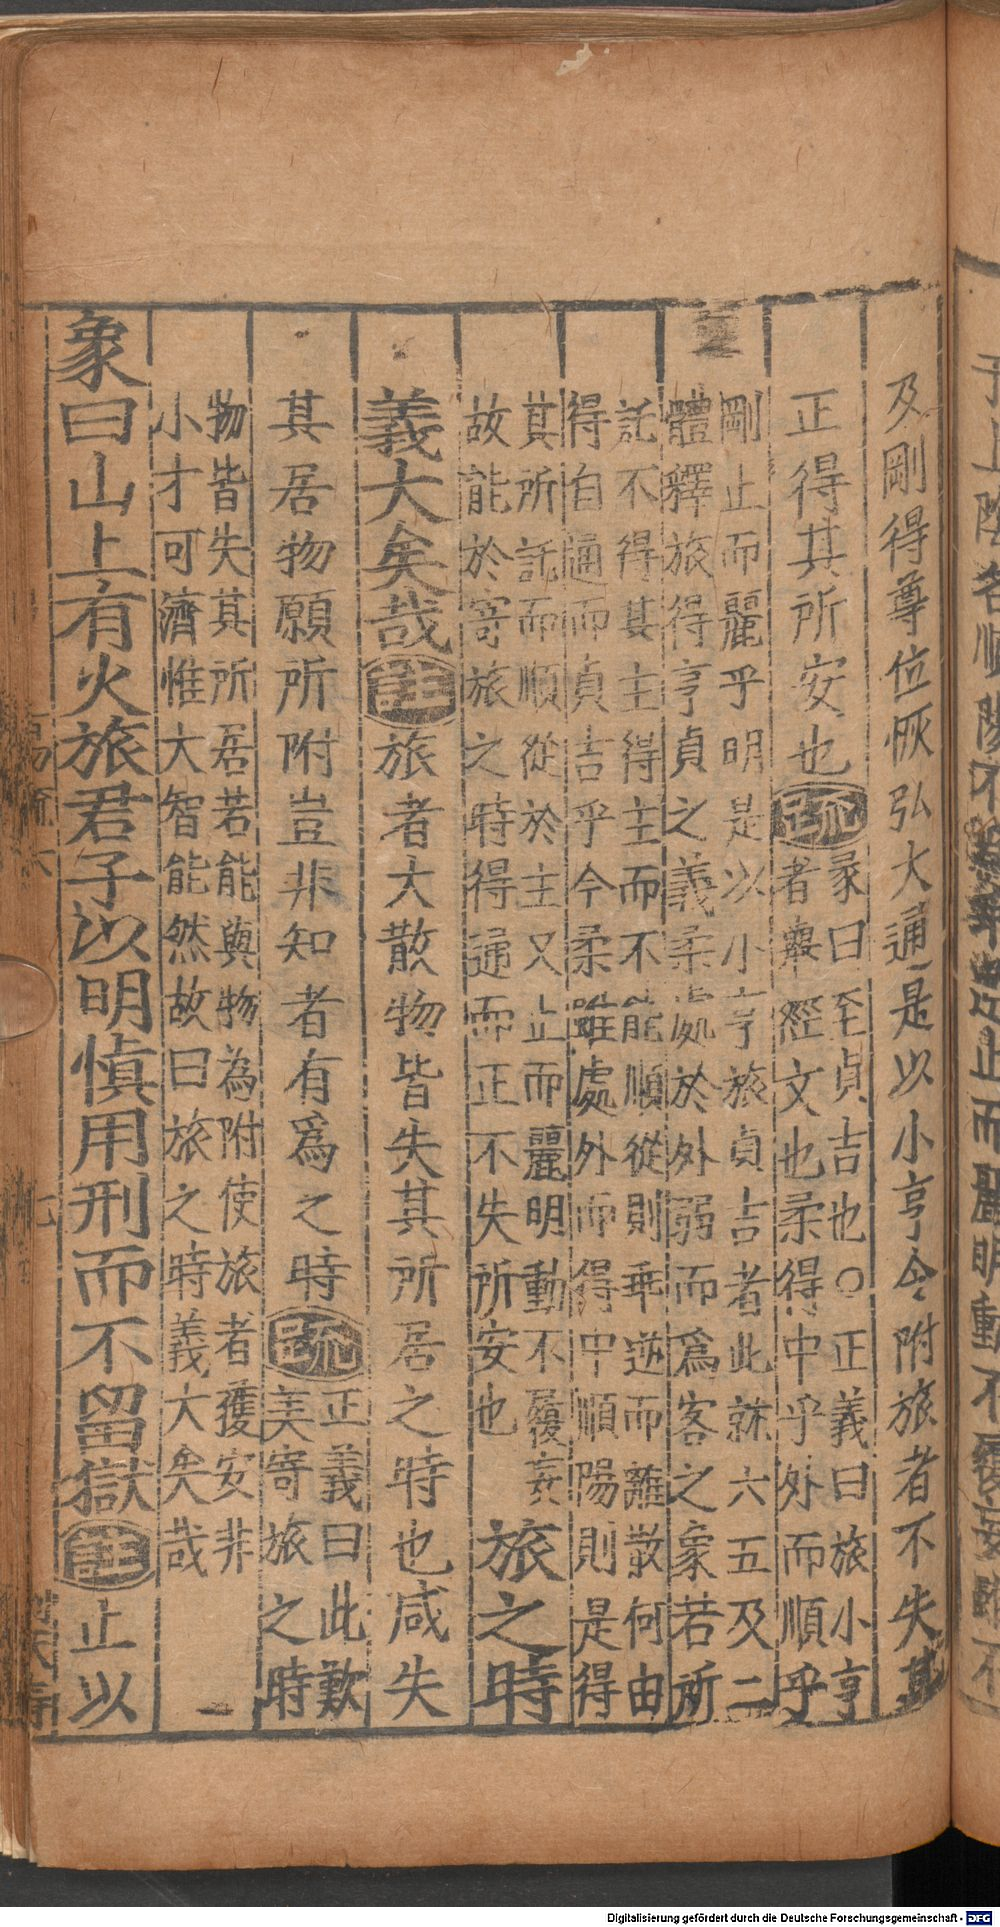 及剛得尊位恢弘大通是以小亨令附旅者不失其
正得其所安也疏彖曰至貞吉也○正義曰旅小亨
者舉經文也柔得中乎外而順乎
剛止而麗乎明是以小亨旅貞吉者此就六五及二
體釋旅得亨貞之義柔處於外弱而爲客之象若所
託不得其主得主而不能順從則乖逆而離散何由
得自通而貞吉乎今柔雖處外而得中順陽則是得
其所託而順從於主又止而麗明動不履妄
故能於寄旅之時得通而正不失所安也
旅之時
義大矣哉註旅者大散物皆失其所居之時也咸失
其居物願所附豈非知者有爲之時疏正義曰此歎
美寄旅之時
物皆失其所居若能與物為附使旅者獲安非
小才可濟惟大智能然故曰旅之時義大矣哉
象曰山上有火旅君子以明慎用刑而不留獄註止以
Digitalisierung gefördert durch die Deutsche Forschungsgemeinschaft - DFG